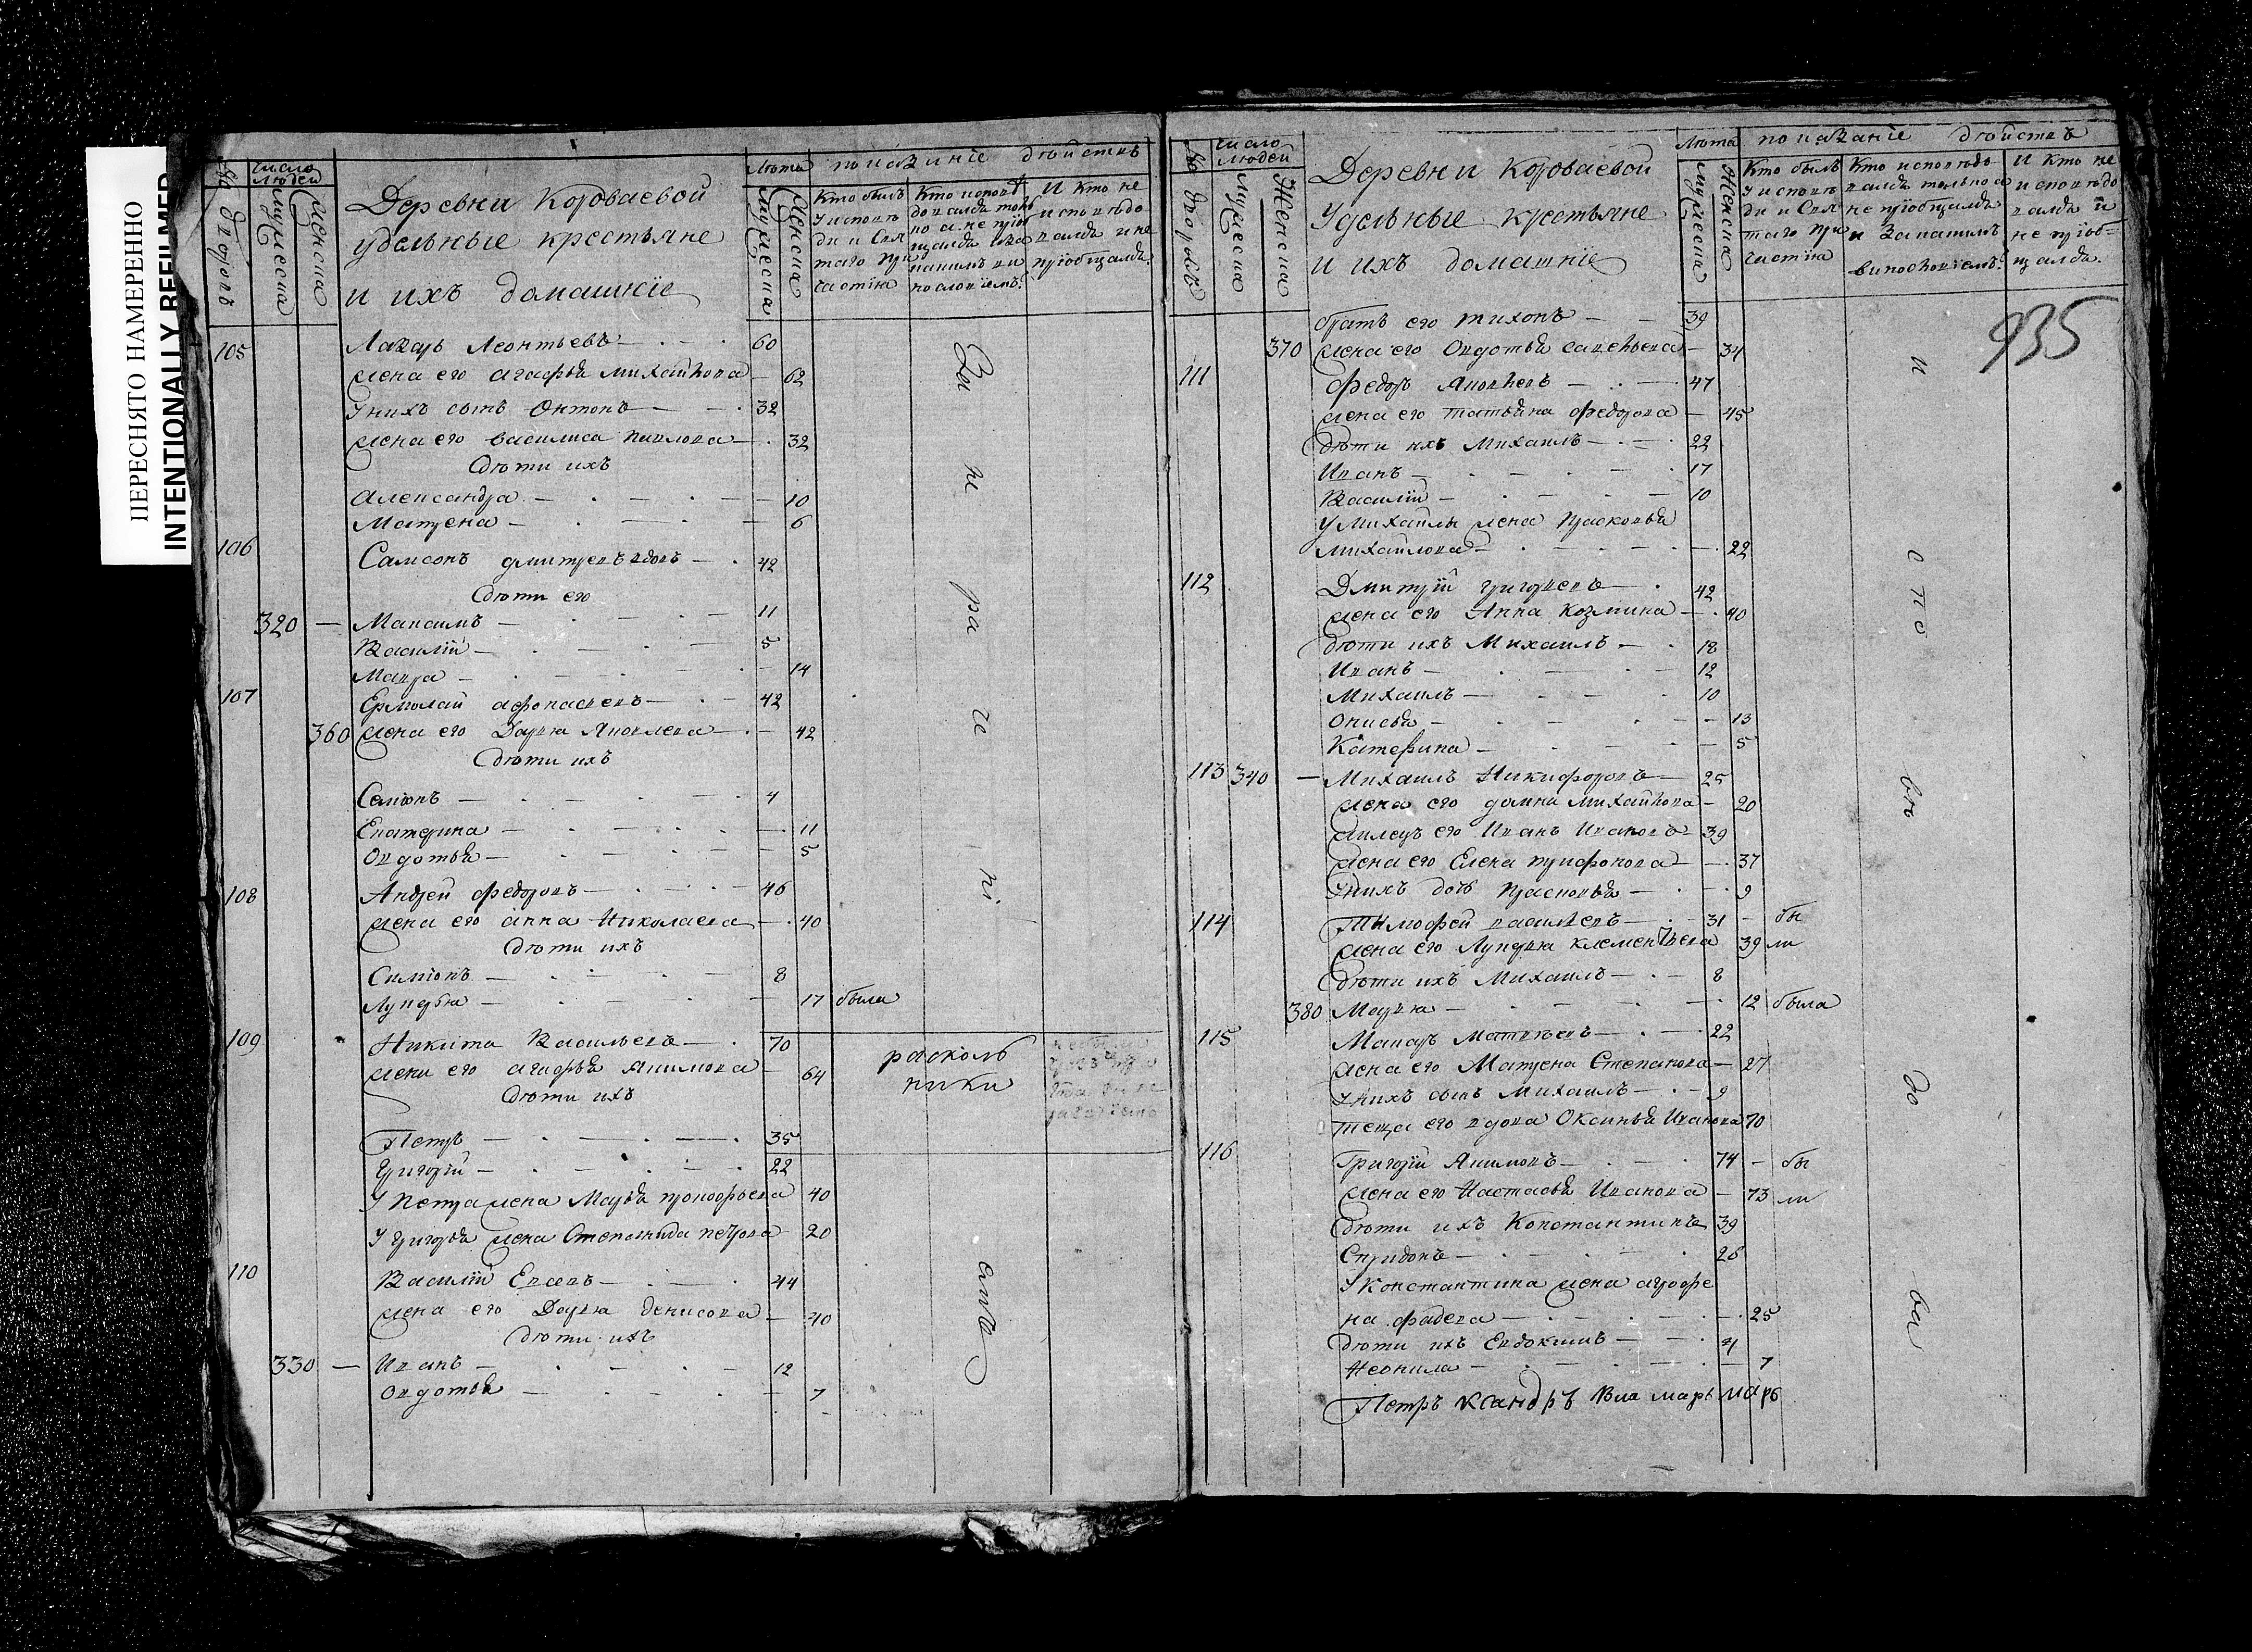 ПЕРЕСНЯТО НАМЕРЕННО
INTENTIONALLY REFILMED
число людей
дворовъ
мужеска
женска
Деревни Короваевой
удельные крестьяне
и ихъ домашние
лета
мужеска
женска
показание действъ
Кто былъ у исповеди и святаго причастия
И кто не исповедовался и не приобщался.
105 Лазарь Леонтьевъ 60
жена его агафья михайлова 62
у нихъ сынъ Онтонъ 32
жена его василиса павлова 32
дети ихъ
александра 10
Матрена 6
106 Самсонъ дмитревъ вдовъ 42
дети его
320 Максимъ 11
Василий 5
Мавра 14
107 Ермолай афонасьевъ 42
360 жена его Дарья Яковлева 42
дети ихъ
Семионъ 4
Екатерина 11
Овдотья 5
108 Андрей федоровъ 46
жена его анна Николаева 40
дети ихъ
Симионъ 8
Лукерья 17 была
109 Никита Васильевъ 70
жена его агафья Якимова 64
дети ихъ
расколь
ники
Петръ 35
Григорий 22
У Петра жена Марья прокофьева 40
У григорья жена Степанида петрова 20
110 Василий Евсевъ 44
жена его Дарья денисова 40
дети ихъ
330 Иванъ 12
Овдотья 7
число людей
дворовъ
мужеска
Женска
Деревни Короваевой
Удельные крестьяне
и ихъ домашние
лета
мужеска
Женска
показание действъ
Кто былъ у исповеди и святаго причастия
Кто исповедовался только а не приобщился и за какимъ винословиемъ.
И кто не исповедовался и не приобщался.
935
братъ его тихонъ 39
370 жена его Овдотья савельева 34
111 федоръ Яковлевъ 47
жена его татьяна федорова 45
дети ихъ Михаилъ 22
Иванъ 17
Василий 10
у михайлы жена прасковья
михайлова 22
112 Дмитрий григорьевъ 42
жена его Анна козмина 40
дети ихъ Михаилъ 18
Иванъ 12
Михаилъ 10
Онисья 13
Катерина 5
113 340 Михаилъ Никифоровъ 25
жена его домна михайлова 20
жилецъ его Иванъ Ивановъ 39
жена его Елена трифонова 37
у нихъ дочь прасковья 9
114 Тымофей васильевъ 31 бы
жена его Лукерья клементьева 39 ли
дети ихъ Михаилъ 8
380 Марья 12 была
115 Макаръ Матвеевъ 22
жена его Матрена Степанова 27
у нихъ сынъ Михаилъ 9
теща его вдова Оксинья Иванова 70
116 Григорий Якимовъ 74 бы
жена его Настасья Иванова 73 ли
дети ихъ Константинъ 39
Спиридонъ 26
у Константина жена агрофе
на фадева 25
дети ихъ Евдокимъ 4
Неонила 7